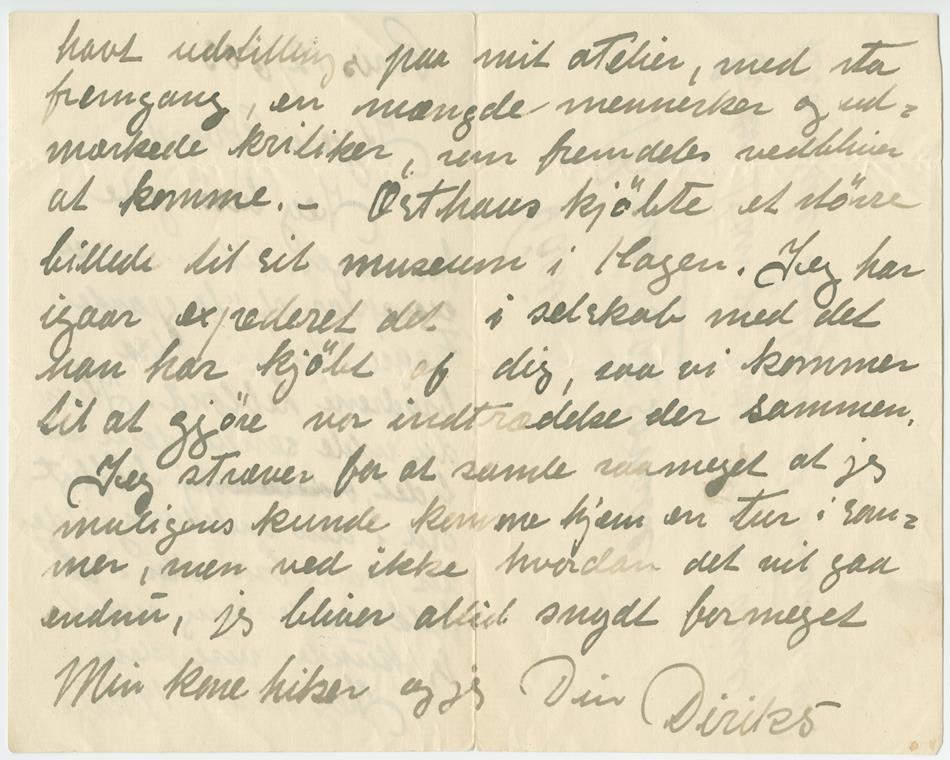 havt udstilling paa mit atelier, med sta
fremgang, en mængde mennesker og ud=
mærkede kritiker, som fremdeles vedbliver
at komme. – Osthaus kjöbte et större
billede til sit museum i Hagen. Jeg har
igaar expederet det i selskab med det
han har kjöbt af dig, saa vi kommer
til at gjöre vor indtrædelse der sammen.
Jeg stræver for at samle saameget at jeg
muligens kunde komme hjem en tur i som=
mer, men ved ikke hvordan det vil gaa
endnu, jeg bliver altid snydt formeget
Min kone hilser og jeg Din Diriks